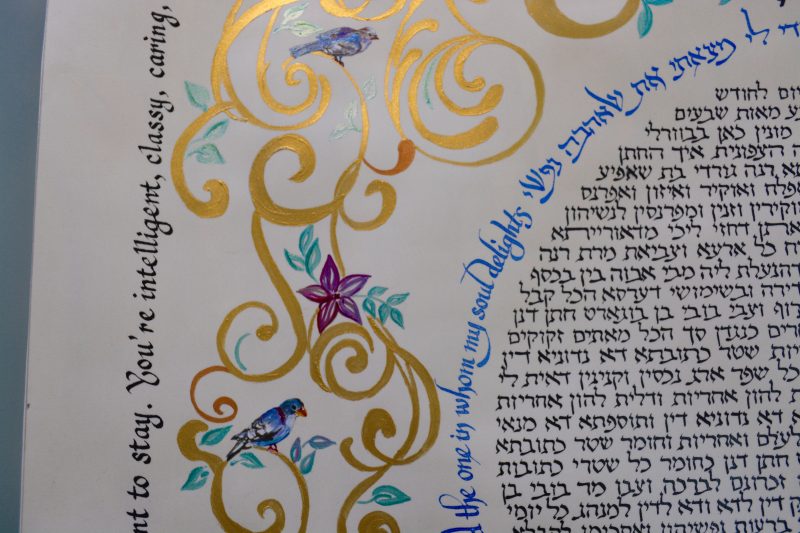 to stay. You're intelligent, classy, caring,
לי מצאתי את שאהבה נפשי
the one in whom my soul delights
יום לחודש
מאות שבעים
מונין כאן בבוורלי
הצפונית איך החתן
רנה נורדי בת שאפיע
ואוקיר ואיזון ואפרנס
מוקירין וזנין ומפרנסין לנשיהון
דחזי ליכי מדאורייתא
כל ארעא וצביאת מרת רנה
דהנעלת ליה מבי אבוה בין בכסף
דירה ובשימושי דערסא הכל קבל
בובי בן חתן דנן
כנגדן סך הכל מאתים זקוקים
שטר כתובתא דא נדוניא דין
כל שפר ארג נכסין וקנינין דאית לי
להון אחריות ודלית להון אחריות
דא נדוניא דין ותוספתא דא מנאי
ואחריות וחומר שטר כתובתא
חתן דנן כחומר כל שטרי כתובות
לברכה בובי בן
דין לדא ודא לדין למנהג כל יומי
נפשיהון ואסכימו